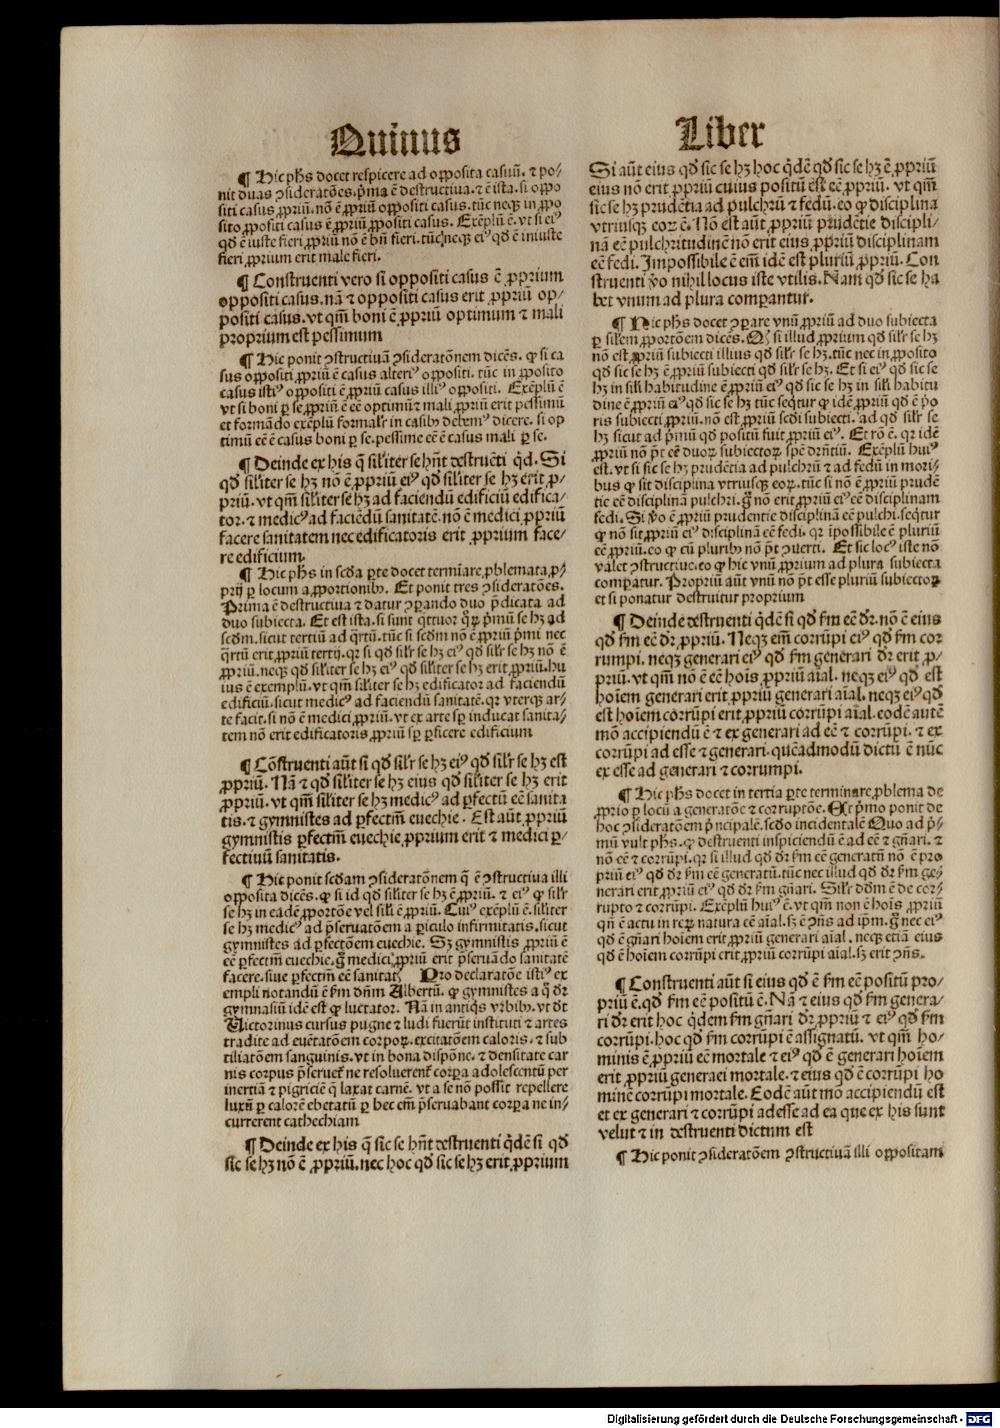 Quintus
Liber
¶ Hic phs docet respicere ad opposita casuū. ⁊ po⸗
nit duas ꝯsideratōes. p̄ma ē destructiua. ⁊ ē ista. si oppo
siti casus ꝓpriū. nō ē ꝓpriū oppositi casus. tūc neqꝫ in ꝓpo
sito ꝓpositi casus ē ꝓpriū ꝓpositi casus. Exēplū ē. vt si eiꝰ
qd̄ ē iuste fieri ꝓpriū nō ē bn̄ fieri. tūc neqꝫ eiꝰ qd̄ ē iniuste
fieri ꝓprium erit male fieri.
¶ Construenti vero si oppositi casus ē ꝓprium
oppositi casus. nā ⁊ oppositi casus erit ꝓpriū op⸗
positi casus. vt qm̄ boni ē ꝓpriū optimum ⁊ mali
proprium est pessimum
¶ Hic ponit ꝯstructiuā ꝯsideratōnem dicēs. ꝙ si ca
sus oppositi ꝓpriū ē casus alteriꝰ oppositi. tūc in ꝓposito
casus istiꝰ oppositi ē ꝓpriū casus illiꝰ oppositi. Exēplū ē
vt si boni ꝑ se ꝓpriū ē eē optimū ⁊ mali ꝓpriū erit pessimū
et formādo exēplū formalr̄ in casibꝫ debemꝰ dicere. si op
timū eē ē casus boni ꝑ se. pessime eē ē casus mali ꝑ se.
¶ Deinde ex his q̄ siliter se hn̄t destruēti qd̄. Si
qd̄ siliter se hꝫ nō ē ꝓpriū eiꝰ qd̄ siliter se hꝫ erit ꝓ⸗
priū. vt qm̄ siliter se hꝫ ad faciendū edificiū edifica⸗
tor. ⁊ medicꝰ ad faciēdū sanitatē. nō ē medici ꝓpriū
facere sanitatem nec edificatoris erit ꝓprium face⸗
re edificium.
¶ Hic phs in scd̄a ꝑte docet termiare ꝓblemata ꝓ⸗
prij ꝑ locum a ꝓportionibꝫ. Et ponit tres ꝯsideratōes.
Prima ē destructiua ⁊ datur ꝯparando duo p̄dicata ad
duo subiecta. Et est ista. si sunt q̄ttuor quoꝝ p̄mū se hꝫ ad
scd̄m. sicut tertiū ad q̄rtū. tūc si scd̄m nō ē ꝓpriū p̄mi nec
q̄rtū erit ꝓpriū tertij. qr si qd̄ silr̄ se hꝫ eiꝰ qd̄ silr̄ se hꝫ nō ē
ꝓpriū. neqꝫ qd̄ siliter se hꝫ eiꝰ qd̄ siliter se hꝫ erit ꝓpriū. hu
ius ē exemplū. vt qm̄ siliter se hꝫ edificator ad faciendū
edificiū. sicut medicꝰ ad faciendū sanitatē. qr vterqꝫ ar⸗
te facit. si nō ē medici ꝓpriū. vt ex arte sp̄ inducat sanita⸗
tem nō erit edificatoris ꝓpriū sp̄ ꝑficere edificium
¶ Cōstruenti aūt si qd̄ silr̄ se hꝫ eiꝰ qd̄ silr̄ se hꝫ est
ꝓpriū. Nā ⁊ qd̄ siliter se hꝫ eius qd̄ siliter se hꝫ erit
ꝓpriū. vt qm̄ siliter se hꝫ medicꝰ ad ꝑfectū eē sanita
tis. ⁊ gymnistes ad ꝑfectm̄ euechie. Est aūt ꝓpriū
gymnistis ꝑfectm̄ euechie ꝓprium erit ⁊ medici ꝑ⸗
fectiuū sanitatis.
¶ Hic ponit scd̄am ꝯsideratōnem q̄ ē ꝯstructiua illi
opposita dicēs. ꝙ si id qd̄ siliter se hꝫ ē ꝓpriū. ⁊ eiꝰ ꝙ silr̄
se hꝫ in eadē ꝓportōe vel sili ē ꝓpriū. Cuiꝰ exēplū ē. siliter
se hꝫ medicꝰ ad p̄seruatōem a ꝑiculo infirmitatis. sicut
gymnistes ad ꝑfectōem euechie. Sꝫ gymnistis ꝓpriū ē
eē ꝑfectm̄ euechie. g̊ medici ꝓpriū erit p̄seruādo sanitatē
facere. siue ꝑfectm̄ eē sanitatꝭ Pro declaratōe istiꝰ ex
empli notandū ē fm̄ dn̄m Albertū. ꝙ gymnistes a q̄ dr̄
gymnasiū idē est ꝙ luctator. Nā in antiq̄s vrbibꝫ. vt dt̄
Victorinus cursus pugne ⁊ ludi fuerūt instituti ⁊ artes
tradite ad euētatōem corpoꝝ. excitatōem caloris. ⁊ sub
tiliatōem sanguinis. vt in bona dispōne. ⁊ densitate car
nis corpus p̄seruet̄ ne resoluerent̄ corꝑa adolescentū per
inertiā ⁊ pigriciē q̄ laxat carnē. vt a se nō possit repellere
luxū ꝑ calorē ebetatū ꝑ hec em̄ p̄seruabant corꝑa ne in⸗
currerent cathechiam
¶ Deinde ex his q̄ sic se hn̄t destruenti qd̄ē si qd̄
sic se hꝫ nō ē ꝓpriū. nec hoc qd̄ sic se hꝫ erit ꝓprium
Si aūt eius qd̄ sic se hꝫ hoc qd̄ē qd̄ sic se hꝫ ē ꝓpriū
eius nō erit ꝓpriū cuius positū est eē ꝓpriū. vt qm̄
sic se hꝫ prudētia ad pulchrū ⁊ fedū. eo ꝙ disciplina
vtriusqꝫ eoꝝ ē. Nō est aūt ꝓpriū prudētie discipli⸗
nā eē pulchritudinē nō erit eius ꝓpriū disciplinam
eē fedi. Impossibile ē em̄ idē est pluriū ꝓpriū. Con
struenti v̊o nihil locus iste vtilis. Nam qd̄ sic se ha
bet vnum ad plura comparatur.
¶ Hic phs docet ꝯparare vnū ꝓpriū ad duo subiecta
ꝑ silem ꝓportōem dicēs. Qꝫ si illud ꝓprium qd̄ silr̄ se hꝫ
nō est ꝓpriū subiecti illius qd̄ silr̄ se hꝫ. tūc nec in ꝓposito
qd̄ sic se hꝫ ē ꝓpriū subiecti qd̄ silr̄ se hꝫ. Et si eiꝰ qd̄ sic se
hꝫ in sili habitudine ē ꝓpriū eiꝰ qd̄ sic se hꝫ in sili habitu
dine ē ꝓpriū eiꝰ qd̄ sic se hꝫ tūc seqt̄ur ꝙ idē ꝓpriū qd̄ ē p̄o
ris subiecti ꝓpriū. nō est ꝓpriū scd̄i subiecti. ad qd̄ silr̄ se
hꝫ sicut ad p̄mū qd̄ positū fuit ꝓpriū eiꝰ. Et rō ē. qr idē
ꝓpriū nō p̄t eē duoꝝ subiectoꝝ spē drn̄tiū. Exēplū huiꝰ
est. vt si sic se hꝫ prudētia ad pulchrū ⁊ ad fedū in mori⸗
bus ꝙ sit disciplina vtriusqꝫ eoꝝ. tūc si nō ē ꝓpriū prudē
tie eē disciplinā pulchri. g̊ nō erit ꝓpriū eiꝰ eē disciplinam
fedi. Si v̊o ē ꝓpriū prudentie disciplinā eē pulchri. seqt̄ur
ꝙ nō sit ꝓpriū eiꝰ disciplinā eē fedi. qr īpossibile ē pluriū
eē ꝓpriū. eo ꝙ cū pluribꝫ nō p̄t ꝯuerti. Et sic locꝰ iste nō
valet ꝯstructiue. eo ꝙ hic vnū ꝓprium ad plura subiecta
comparatur. Propriū aūt vnū nō p̄t esse pluriū subiectoꝝ
et si ponatur destruitur proprium
¶ Deinde destruenti qd̄ē si qd̄ fm̄ eē dr̄. nō ē eius
qd̄ fm̄ eē dr̄ ꝓpriū. Neqꝫ em̄ corrūpi eiꝰ qd̄ fm̄ cor
rumpi. neqꝫ generari eiꝰ qd̄ fm̄ generari dr̄ erit ꝓ⸗
priū. vt qm̄ nō ē eē hoīs ꝓpriū aīal. neqꝫ eiꝰ qd̄ est
hoīem generari erit ꝓpriū generari aīal. neqꝫ eiꝰ qd̄
est hoīem corrūpi erit ꝓpriū corrūpi aīal. eodē autē
mō accipiendū ē ⁊ ex generari ad eē ⁊ corrūpi. ⁊ ex
corrūpi ad esse ⁊ generari. quēadmodū dictū ē nūc
ex esse ad generari ⁊ corrumpi.
¶ Hic phs docet in tertia ꝑte terminare ꝓblema de
ꝓprio ꝑ locū a generatōe ⁊ corruptōe. Et p̄mo ponit de
hoc ꝯsideratōem p̄ncipalē. scd̄o incidentalē Quo ad p̄⸗
mū vult phs. ꝙ destruenti inspiciendū ē ad eē ⁊ gn̄ari. ⁊
nō eē ⁊ corrūpi. qr si illud qd̄ dr̄ fm̄ eē generatū nō ē pro
priū eiꝰ qd̄ dr̄ fm̄ eē generatū. tūc nec illud qd̄ dr̄ fm̄ ge⸗
nerari erit ꝓpriū eiꝰ qd̄ dr̄ fm̄ gn̄ari. Silr̄ dd̄m ē de cor⸗
rupto ⁊ corrūpi. Exēplū huiꝰ ē. vt qm̄ non ē hoīs ꝓpriū
qn̄ ē actu in rerꝫ natura eē aīal. sꝫ ē ꝯn̄s ad ip̄m. g̊ nec eiꝰ
qd̄ ē gn̄ari hoīem erit ꝓpriū generari aīal. neqꝫ etiā eius
qd̄ ē hoīem corrūpi erit ꝓpriū corrūpi aīal. sꝫ erit ꝯn̄s.
¶ Construenti aūt si eius qd̄ ē fm̄ eē positū pro⸗
priū ē. qd̄ fm̄ eē positū ē. Nā ⁊ eius qd̄ fm̄ genera⸗
ri dr̄ erit hoc qd̄em fm̄ gn̄ari dr̄ ꝓpriū ⁊ eiꝰ qd̄ fm̄
corrūpi. hoc qd̄ fm̄ corrūpi ē assignatū. vt qm̄ ho⸗
minis ē ꝓpriū eē mortale ⁊ eiꝰ qd̄ ē generari hoīem
erit ꝓpriū generari mortale. ⁊ eius qd̄ ē corrūpi ho
minē corrūpi mortale. Eodē aūt mō accipiendū est
et ex generari ⁊ corrūpi ad esse ad ea que ex his sunt
velut ⁊ in destruenti dictum est
¶ Hic ponit ꝯsideratōem ꝯstructiuā illi oppositam
Digitalisierung gefördert durch die Deutsche Forschungsgemeinschaft - DFG